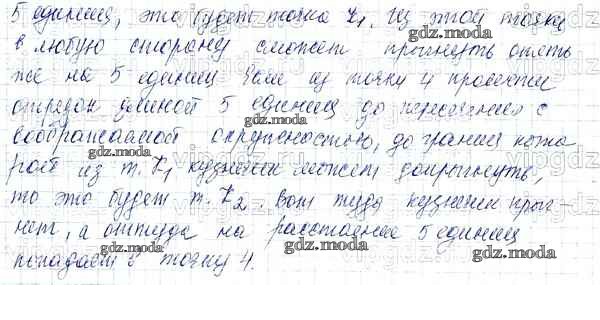 5 единиц, это будет точка K₁. Из этой точки
в любую сторону сможет прыгнуть опять
же на 5 единиц Если из точки 4 провести
отрезок длиной 5 единиц до пересечения с
воображаемой окружностью, до границ кото
рой из т. K₁ кузнечик может допрыгнуть,
то это будет т. K₂. Вот туда кузнечик прыг-
нет, а оттуда на расстояние 5 единиц
попадает в точку 4.
gdz.moda
gdz.moda
gdz.moda
gdz.moda
gdz.moda
gdz.moda
gdz.moda
gdz.moda
gdz.moda
vipgdz
vipgdz
vipgdz